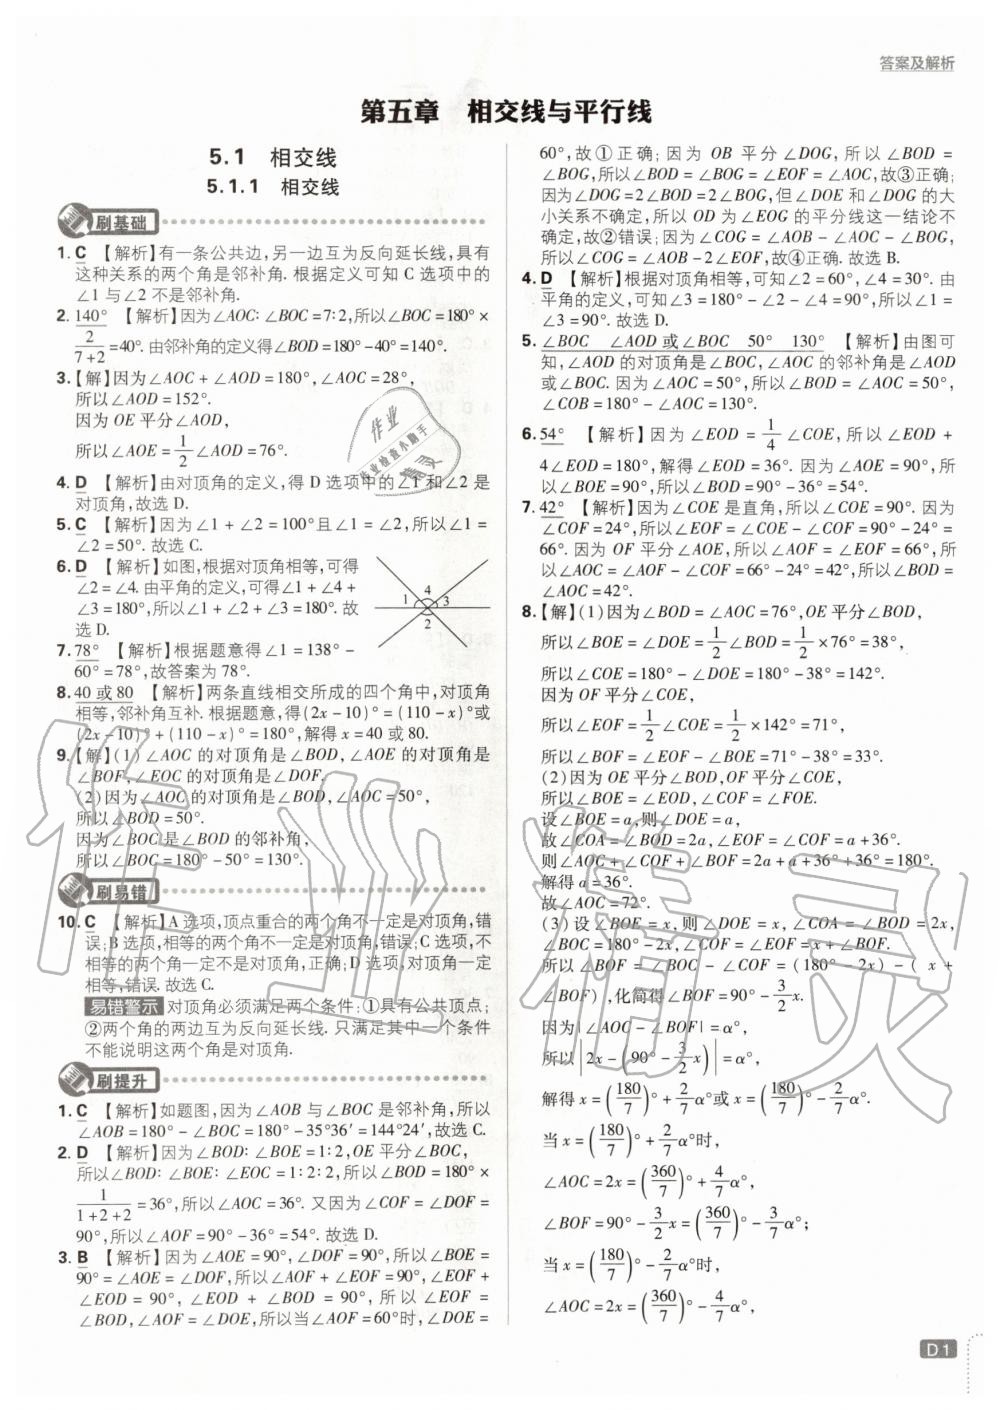 答案及解析
第五章 相交线与平行线
5.1 相交线
5.1.1 相交线
刷基础
1. C 【解析】有一条公共边,另一边互为反向延长线,具有
这种关系的两个角是邻补角. 根据定义可知 C 选项中的
∠1 与∠2 不是邻补角.
2. 140° 【解析】因为∠AOC∶∠BOC=7∶2,所以∠BOC=180°×
2/(7+2)=40°. 由邻补角的定义得∠BOD=180°-40°=140°.
3.【解】因为∠AOC+∠AOD=180°,∠AOC=28°,
所以∠AOD=152°.
因为 OE 平分∠AOD,
所以∠AOE=1/2∠AOD=76°.
4. D 【解析】由对顶角的定义,得 D 选项中的∠1 和∠2 是
对顶角,故选 D.
5. C 【解析】因为∠1+∠2=100°且∠1=∠2,所以∠1=
∠2=50°. 故选 C.
6. D 【解析】如图,根据对顶角相等,可得
∠2=∠4. 由平角的定义,可得∠1+∠4+
∠3=180°,所以∠1+∠2+∠3=180°. 故
选 D.
1 4 3 2
7. 78° 【解析】根据题意得∠1=138°-
60°=78°,故答案为 78°.
8. 40 或 80 【解析】两条直线相交所成的四个角中,对顶角
相等,邻补角互补. 根据题意,得(2x-10)°=(110-x)°或
(2x-10)°+(110-x)°=180°,解得 x=40 或 80.
9.【解】(1)∠AOC 的对顶角是∠BOD,∠AOE 的对顶角是
∠BOF,∠EOC 的对顶角是∠DOF.
(2)因为∠AOC 的对顶角是∠BOD,∠AOC=50°,
所以∠BOD=50°.
因为∠BOC 是∠BOD 的邻补角,
所以∠BOC=180°-50°=130°.
刷易错
10. C 【解析】A 选项,顶点重合的两个角不一定是对顶角,错
误;B 选项,相等的两个角不一定是对顶角,错误;C 选项,不
相等的两个角一定不是对顶角,正确;D 选项,对顶角一定
相等,错误. 故选 C.
易错警示 对顶角必须满足两个条件:①具有公共顶点;
②两个角的两边互为反向延长线. 只满足其中一个条件
不能说明这两个角是对顶角.
刷提升
1. C 【解析】如题图,因为∠AOB 与∠BOC 是邻补角,所以
∠AOB=180°-∠BOC=180°-35°36′=144°24′,故选 C.
2. D 【解析】因为∠BOD∶∠BOE=1∶2,OE 平分∠BOC,
所以∠BOD∶∠BOE∶∠EOC=1∶2∶2,所以∠BOD=180°×
1/(1+2+2)=36°,所以∠AOC=36°. 又因为∠COF=∠DOF=
90°,所以∠AOF=90°-36°=54°. 故选 D.
3. B 【解析】因为∠AOE=90°,∠DOF=90°,所以∠BOE=
90°=∠AOE=∠DOF,所以∠AOF+∠EOF=90°,∠EOF+
∠EOD=90°,∠EOD+∠BOD=90°,所以∠EOF=
∠BOD,∠AOF=∠DOE,所以当∠AOF=60°时,∠DOE=
60°,故①正确;因为 OB 平分∠DOG,所以∠BOD=
∠BOG,所以∠BOD=∠BOG=∠EOF=∠AOC,故③正确;
因为∠DOG=2∠BOD=2∠BOG,但∠DOE 和∠DOG 的大
小关系不确定,所以 OD 为∠EOG 的平分线这一结论不
确定,故②错误;因为∠COG=∠AOB-∠AOC-∠BOG,
所以∠COG=∠AOB-2∠EOF,故④正确. 故选 B.
4. D 【解析】根据对顶角相等,可知∠2=60°,∠4=30°. 由
平角的定义,可知∠3=180°-∠2-∠4=90°,所以∠1=
∠3=90°. 故选 D.
5. ∠BOC ∠AOD 或∠BOC 50° 130° 【解析】由图可
知,∠AOD 的对顶角是∠BOC,∠AOC 的邻补角是∠AOD
或∠BOC. 因为∠AOC=50°,所以∠BOD=∠AOC=50°,
∠COB=180°-∠AOC=130°.
6. 54° 【解析】因为∠EOD=1/4∠COE,所以∠EOD+
4∠EOD=180°,解得∠EOD=36°. 因为∠AOE=90°,所
以∠BOE=90°,所以∠BOD=90°-36°=54°.
7. 42° 【解析】因为∠COE 是直角,所以∠COE=90°. 因为
∠COF=24°,所以∠EOF=∠COE-∠COF=90°-24°=
66°. 因为 OF 平分∠AOE,所以∠AOF=∠EOF=66°,所
以∠AOC=∠AOF-∠COF=66°-24°=42°,所以∠BOD=
∠AOC=42°.
8.【解】(1)因为∠BOD=∠AOC=76°,OE 平分∠BOD,
所以∠BOE=∠DOE=1/2∠BOD=1/2×76°=38°,
所以∠COE=180°-∠DOE=180°-38°=142°.
因为 OF 平分∠COE,
所以∠EOF=1/2∠COE=1/2×142°=71°,
所以∠BOF=∠EOF-∠BOE=71°-38°=33°.
(2)因为 OE 平分∠BOD,OF 平分∠COE,
所以∠BOE=∠EOD,∠COF=∠FOE.
设∠BOE=a,则∠DOE=a,
故∠COA=∠BOD=2a,∠EOF=∠COF=a+36°.
则∠AOC+∠COF+∠BOF=2a+a+36°+36°=180°.
解得 a=36°.
故∠AOC=72°.
(3)设∠BOE=x,则∠DOE=x,∠COA=∠BOD=2x,
∠BOC=180°-2x,∠COF=∠EOF=x+∠BOF.
所以∠BOF=∠BOC-∠COF=(180°-2x)-(x+
∠BOF),化简得∠BOF=90°-3/2x.
因为|∠AOC-∠BOF|=α°,
所以|2x-(90°-3/2x)|=α°,
解得 x=(180/7)°+2/7α°或 x=(180/7)°-2/7α°.
当 x=(180/7)°+2/7α°时,
∠AOC=2x=(360/7)°+4/7α°,
∠BOF=90°-3/2x=(360/7)°-3/7α°;
当 x=(180/7)°-2/7α°时,
∠AOC=2x=(360/7)°-4/7α°,
D1
作业
作业检查小助手
精灵
作业精灵